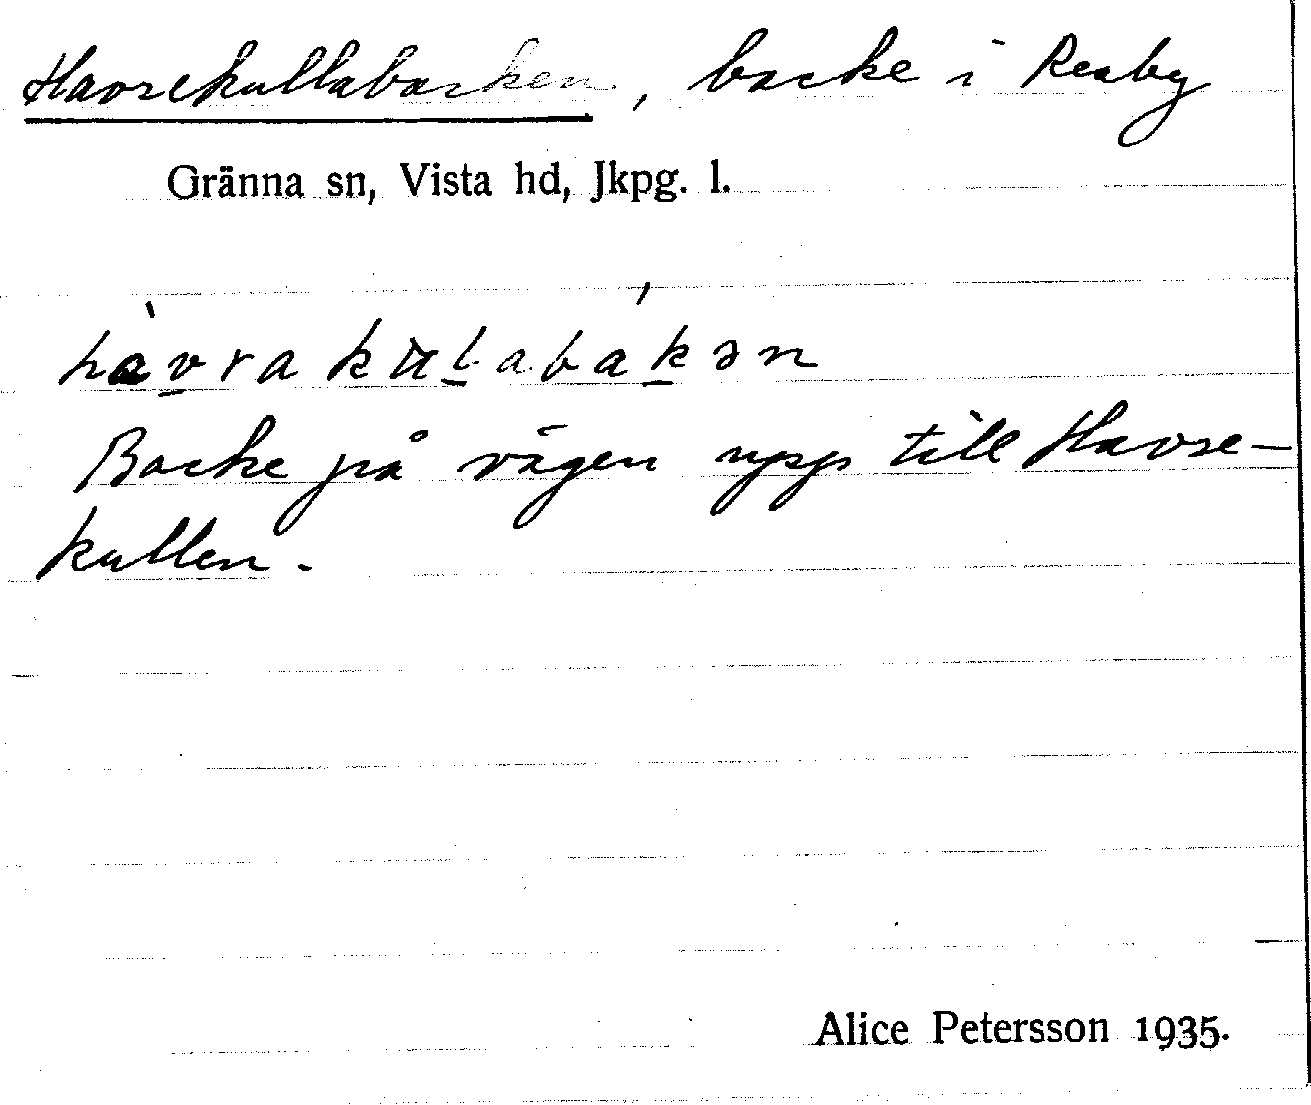 Havrekullabacken, backe i Reaby
Gränna sn, Vista hd, Jkpg. l.
hàvrakulabákən
Backe på vägen upp till Havre-
kullen.
Alice Petersson 1935.